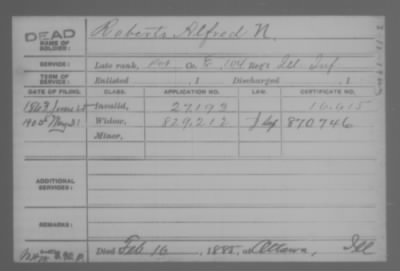 DEAD
NAME OF SOLDIER: Roberts Alfred N.
SERVICE: Late rank, Co. E, 104 Ill. Inf
TERM OF SERVICE: Enlisted , 1 Discharged , 1
DATE OF FILING. CLASS. APPLICATION NO. LAW. CERTIFICATE NO.
1863 Invalid, 27,192 16,615
May 21 Widow, 829,212 870,746
Minor,
ADDITIONAL SERVICES:
REMARKS:
Died Feb 16, 1885, at Ottawa, Ill